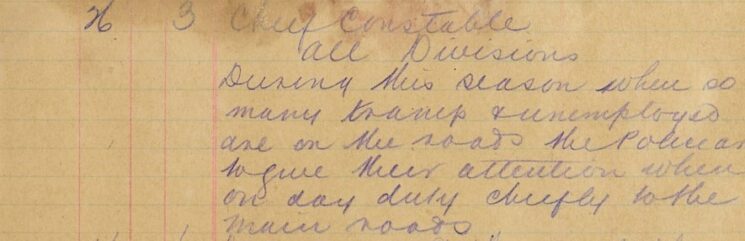 26 3 Chief Constable
all Divisions
During this season when so
many tramps & unemployed
are on the roads the Police are
to give their attention when
on day duty chiefly to the
main roads